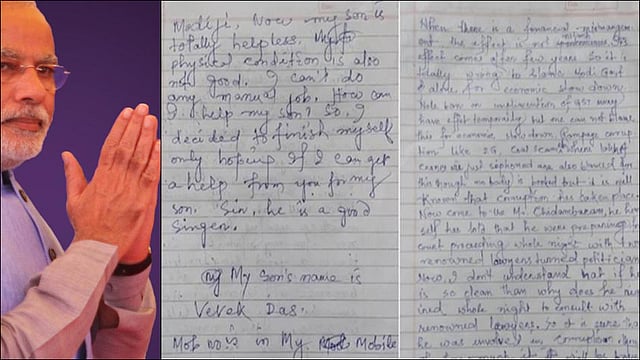 Modiji, Now my son is
totally helpless. My
physical condition is also
not good. I can't do
any manual job. How can
I help my son? So, I
decided to finish myself
only hoping If I can get
a help from you for my
son. Sir, he is a good
Singer.
My Son's name is
Vevek Das.
Mob no is in My Mobile
When there is a financial
the effect is not
effect comes after few years So it is
totally wrong to blame Modi Govt
alone for economic slow down.
Note ban or implimention of GST may
have effect temporarily but one can not blame
this for economic slow down. Rampage corrup
tion like 2G, Coal scams where lakhs of
crores are just siphoned are also blamed for
this though no body is booked but it is well
known that corruption has taken place.
Now come to the Mr. Chidambaram, he him
self has told that he were preparing
court proceding whole night with
renowned lawyers turned politician
Now, I don't understand that if he
is so clean than why does he
ined whole night to consult with
renowned lawyers. So it is sure that
he was involved in corruption.